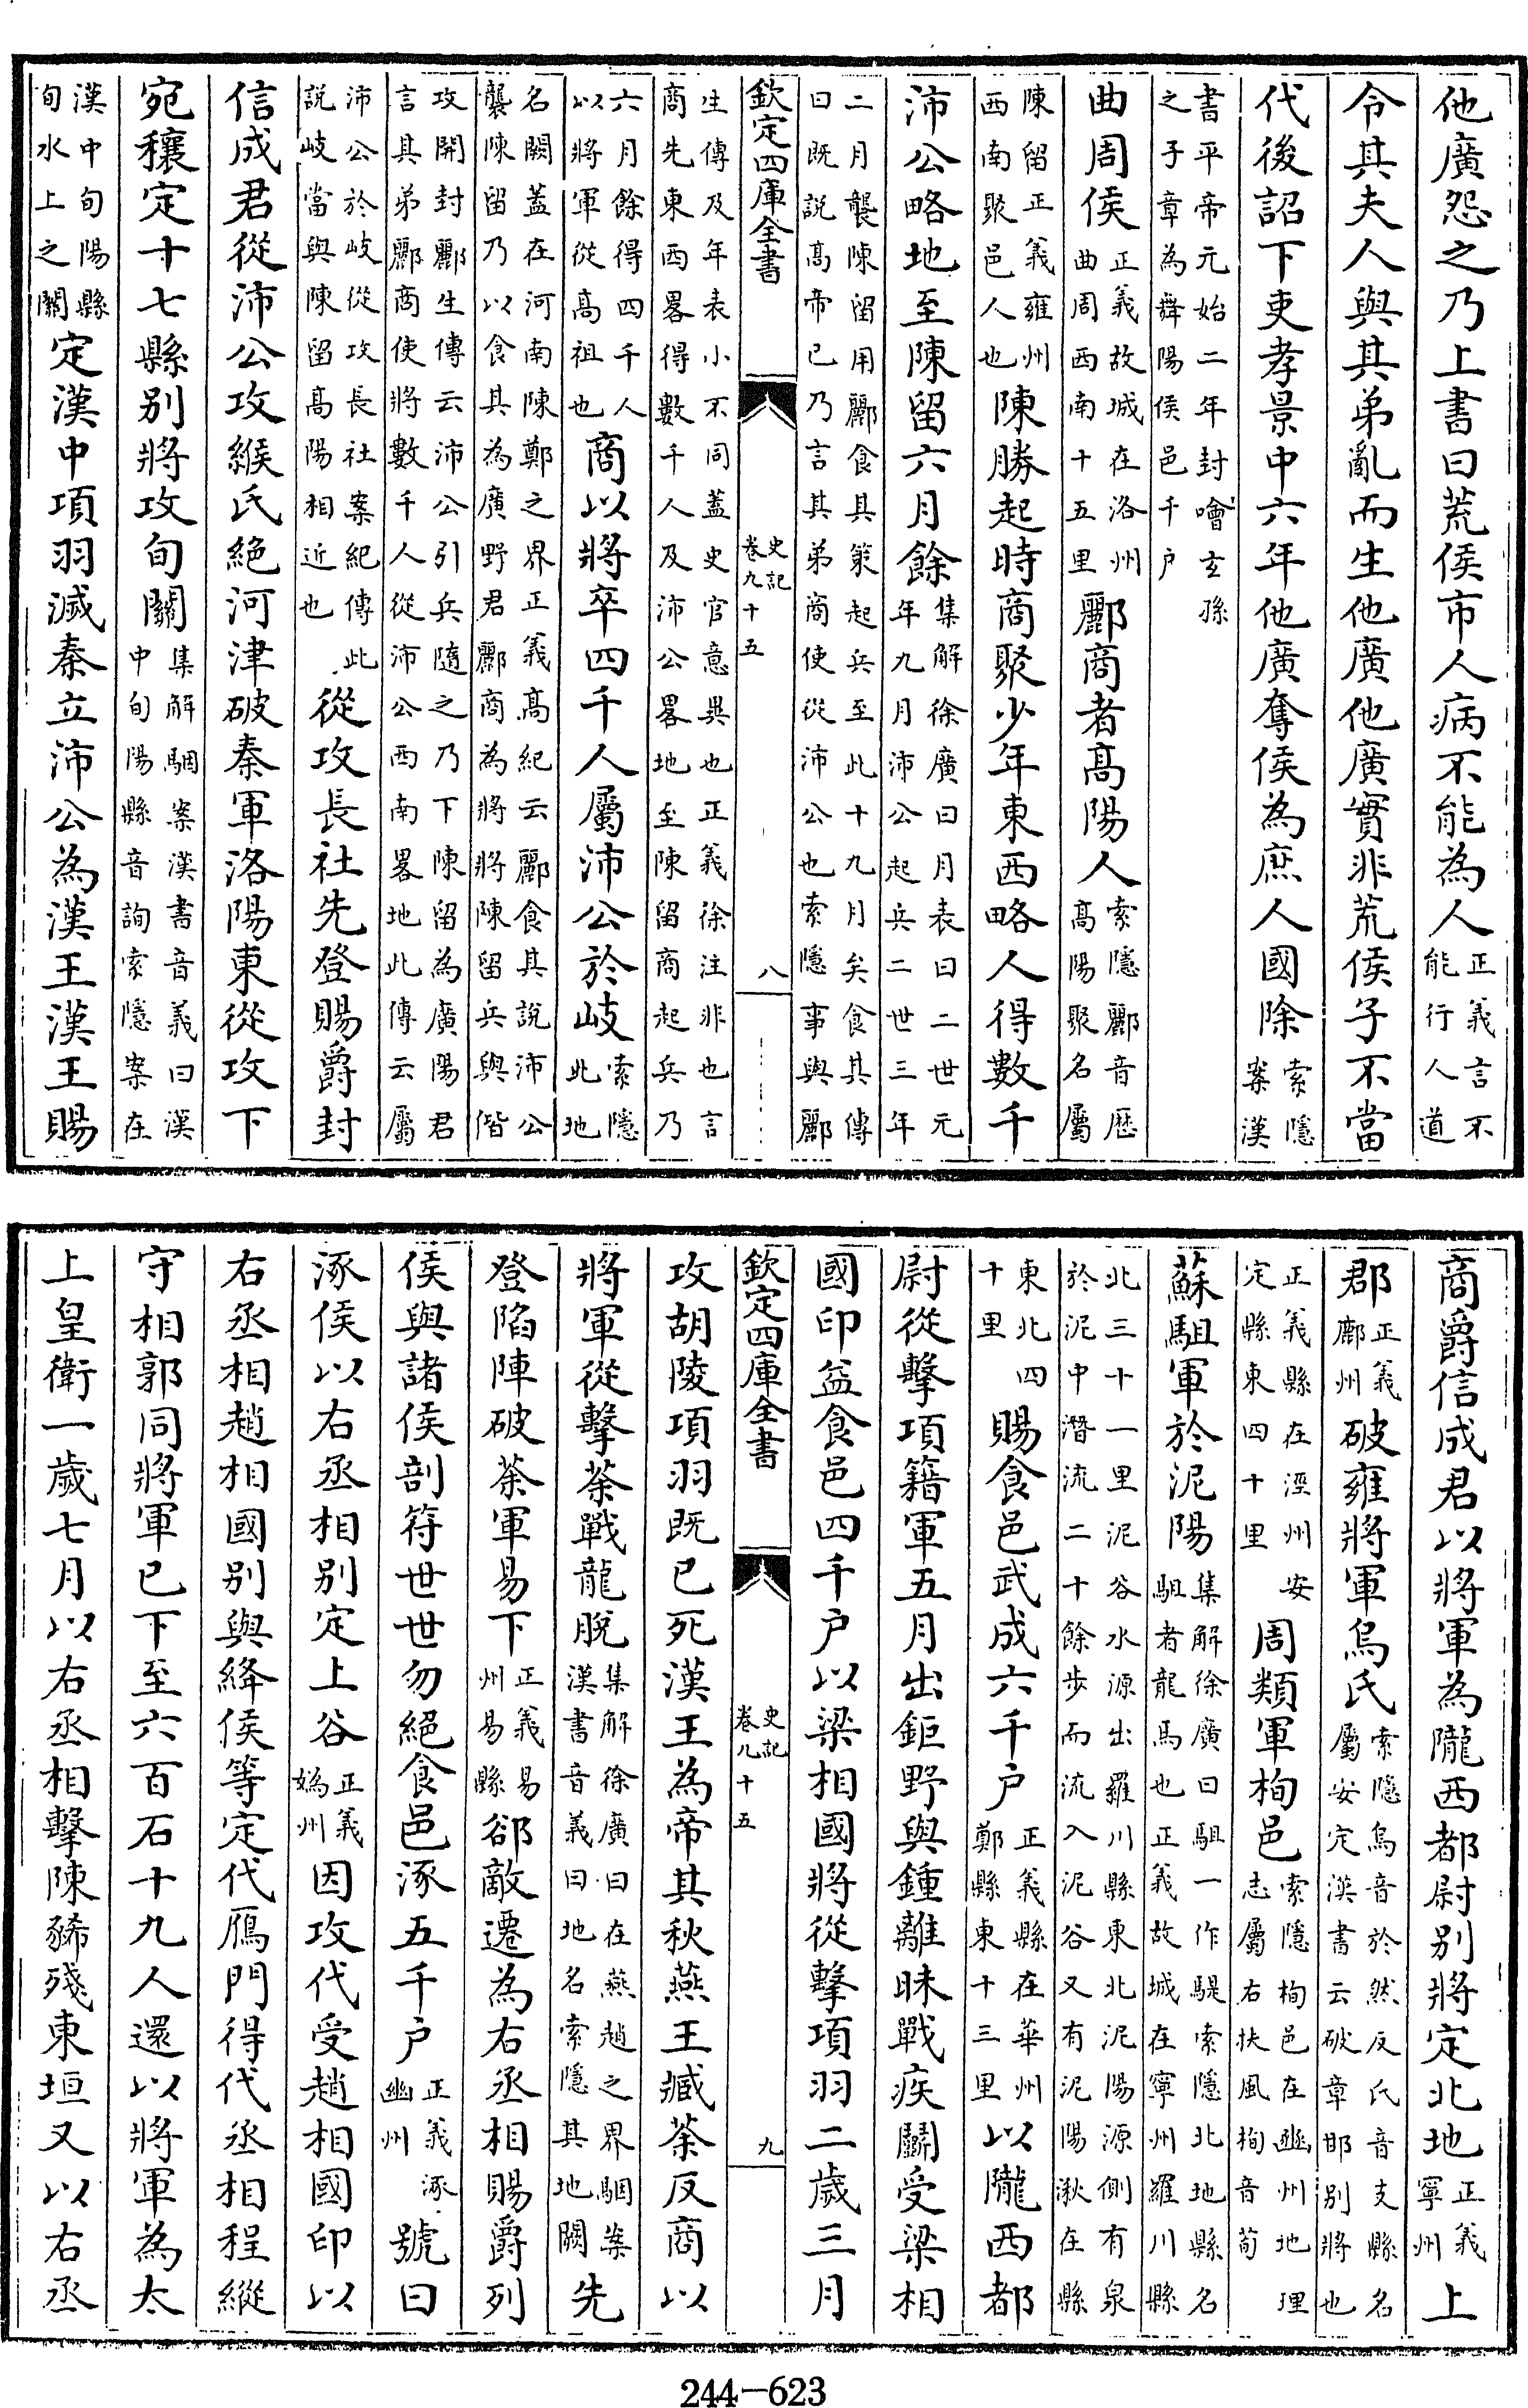 他廣怨之乃上書曰荒侯市人病不能為人正義言不能行人道
令其夫人與其弟亂而生他廣他廣實非荒侯子不當
代後詔下吏孝景中六年他廣奪侯為庶人國除索隱案漢
書平帝元始二年封噲玄孫之子章為舞陽侯邑千户
曲周侯正義故城在洛州曲周西南十五里酈商者髙陽人索隱酈音歴髙陽聚名屬
陳留正義雍州西南聚邑人也陳勝起時商聚少年東西略人得數千
沛公略地至陳留六月餘集解徐廣曰月表曰二世元年九月沛公起兵二世三年
二月襲陳留用酈食其䇿起兵至此十九月矣食其傳曰既説髙帝已乃言其弟商使從沛公也索隱事與酈
欽定四庫全書
史記卷九十五
八
生傳及年表小不同蓋史官意異也正義徐注非也言商先東西畧得數千人及沛公畧地至陳留商起兵乃
六月餘得四千人以將軍從髙祖也商以將卒四千人屬沛公於岐索隱此地
名闕蓋在河南陳鄭之界正義髙紀云酈食其說沛公襲陳留乃以食其為廣野君酈商為將將陳留兵與偕
攻開封酈生傳云沛公引兵隨之乃下陳留為廣陽君言其弟酈商使將數千人從沛公西南畧地此傳云屬
沛公於岐從攻長社案紀傳此説岐當與陳留髙陽相近也從攻長社先登賜爵封
信成君從沛公攻緱氏絶河津破秦軍洛陽東從攻下
宛穰定十七縣别將攻旬關集解駰案漢書音義曰漢中旬陽縣音詢索隱案在
漢中旬陽縣旬水上之關定漢中項羽滅秦立沛公為漢王漢王賜
商爵信成君以將軍為隴西都尉别將定北地正義寧州上
郡正義鄜州破雍將軍烏氏索隱烏音於然反氏音支縣名屬安定漢書云破章邯别將也
正義縣在涇州安定縣東四十里周類軍栒邑索隱栒邑在豳州地理志屬右扶風栒音荀
蘇駔軍於泥陽集解徐廣曰駔一作駃索隱北地縣名駔者龍馬也正義故城在寧州羅川縣
北三十一里泥谷水源出羅川縣東北泥陽源側有泉於泥中潛流二十餘步而流入泥谷又有泥陽湫在縣
東北四十里賜食邑武成六千户正義縣在華州鄭縣東十三里以隴西都
尉從擊項籍軍五月出鉅野與鍾離眛戰疾鬭受梁相
國印益食邑四千户以梁相國將從擊項羽二歲三月
欽定四庫全書
史記卷九十五
九
攻胡陵項羽既已死漢王為帝其秋燕王臧荼反商以
將軍從擊荼戰龍脫集解徐廣曰在燕趙之界駰案漢書音義曰地名索隱其地闕先
登陷陣破荼軍易下正義易州易縣郤敵遷為右丞相賜爵列
侯與諸侯剖符世世勿絕食邑涿五千户正義涿幽州號曰
涿侯以右丞相别定上谷正義媯州因攻代受趙相國印以
右丞相趙相國别與絳侯等定代鴈門得代丞相程縱
守相郭同將軍已下至六百石十九人還以將軍為太
上皇衛一歲七月以右丞相擊陳豨殘東垣又以右丞
244—623